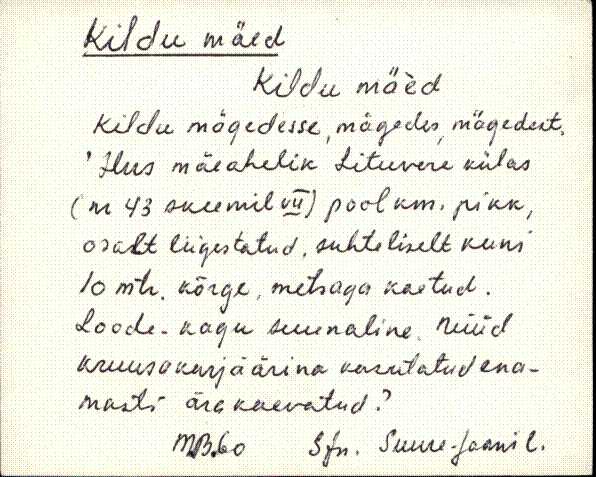 Kildu mäed
Kildu mäèd
Kildu mägedesse, mägedes, mägedest.
'Ilus mäeahelik Lituvere külas
(nr 43 skeemil VII) pool km. pikk,
osalt liigestatud, suhteliselt kuni
10 mtr. kõrge, metsaga kaetud.
Loode-kagu suunaline. Nüüd
kruusakarjäärina kasutatud ena-
masti ära kaevatud?
M.B.60 Sjn. Suure-Jaani l.